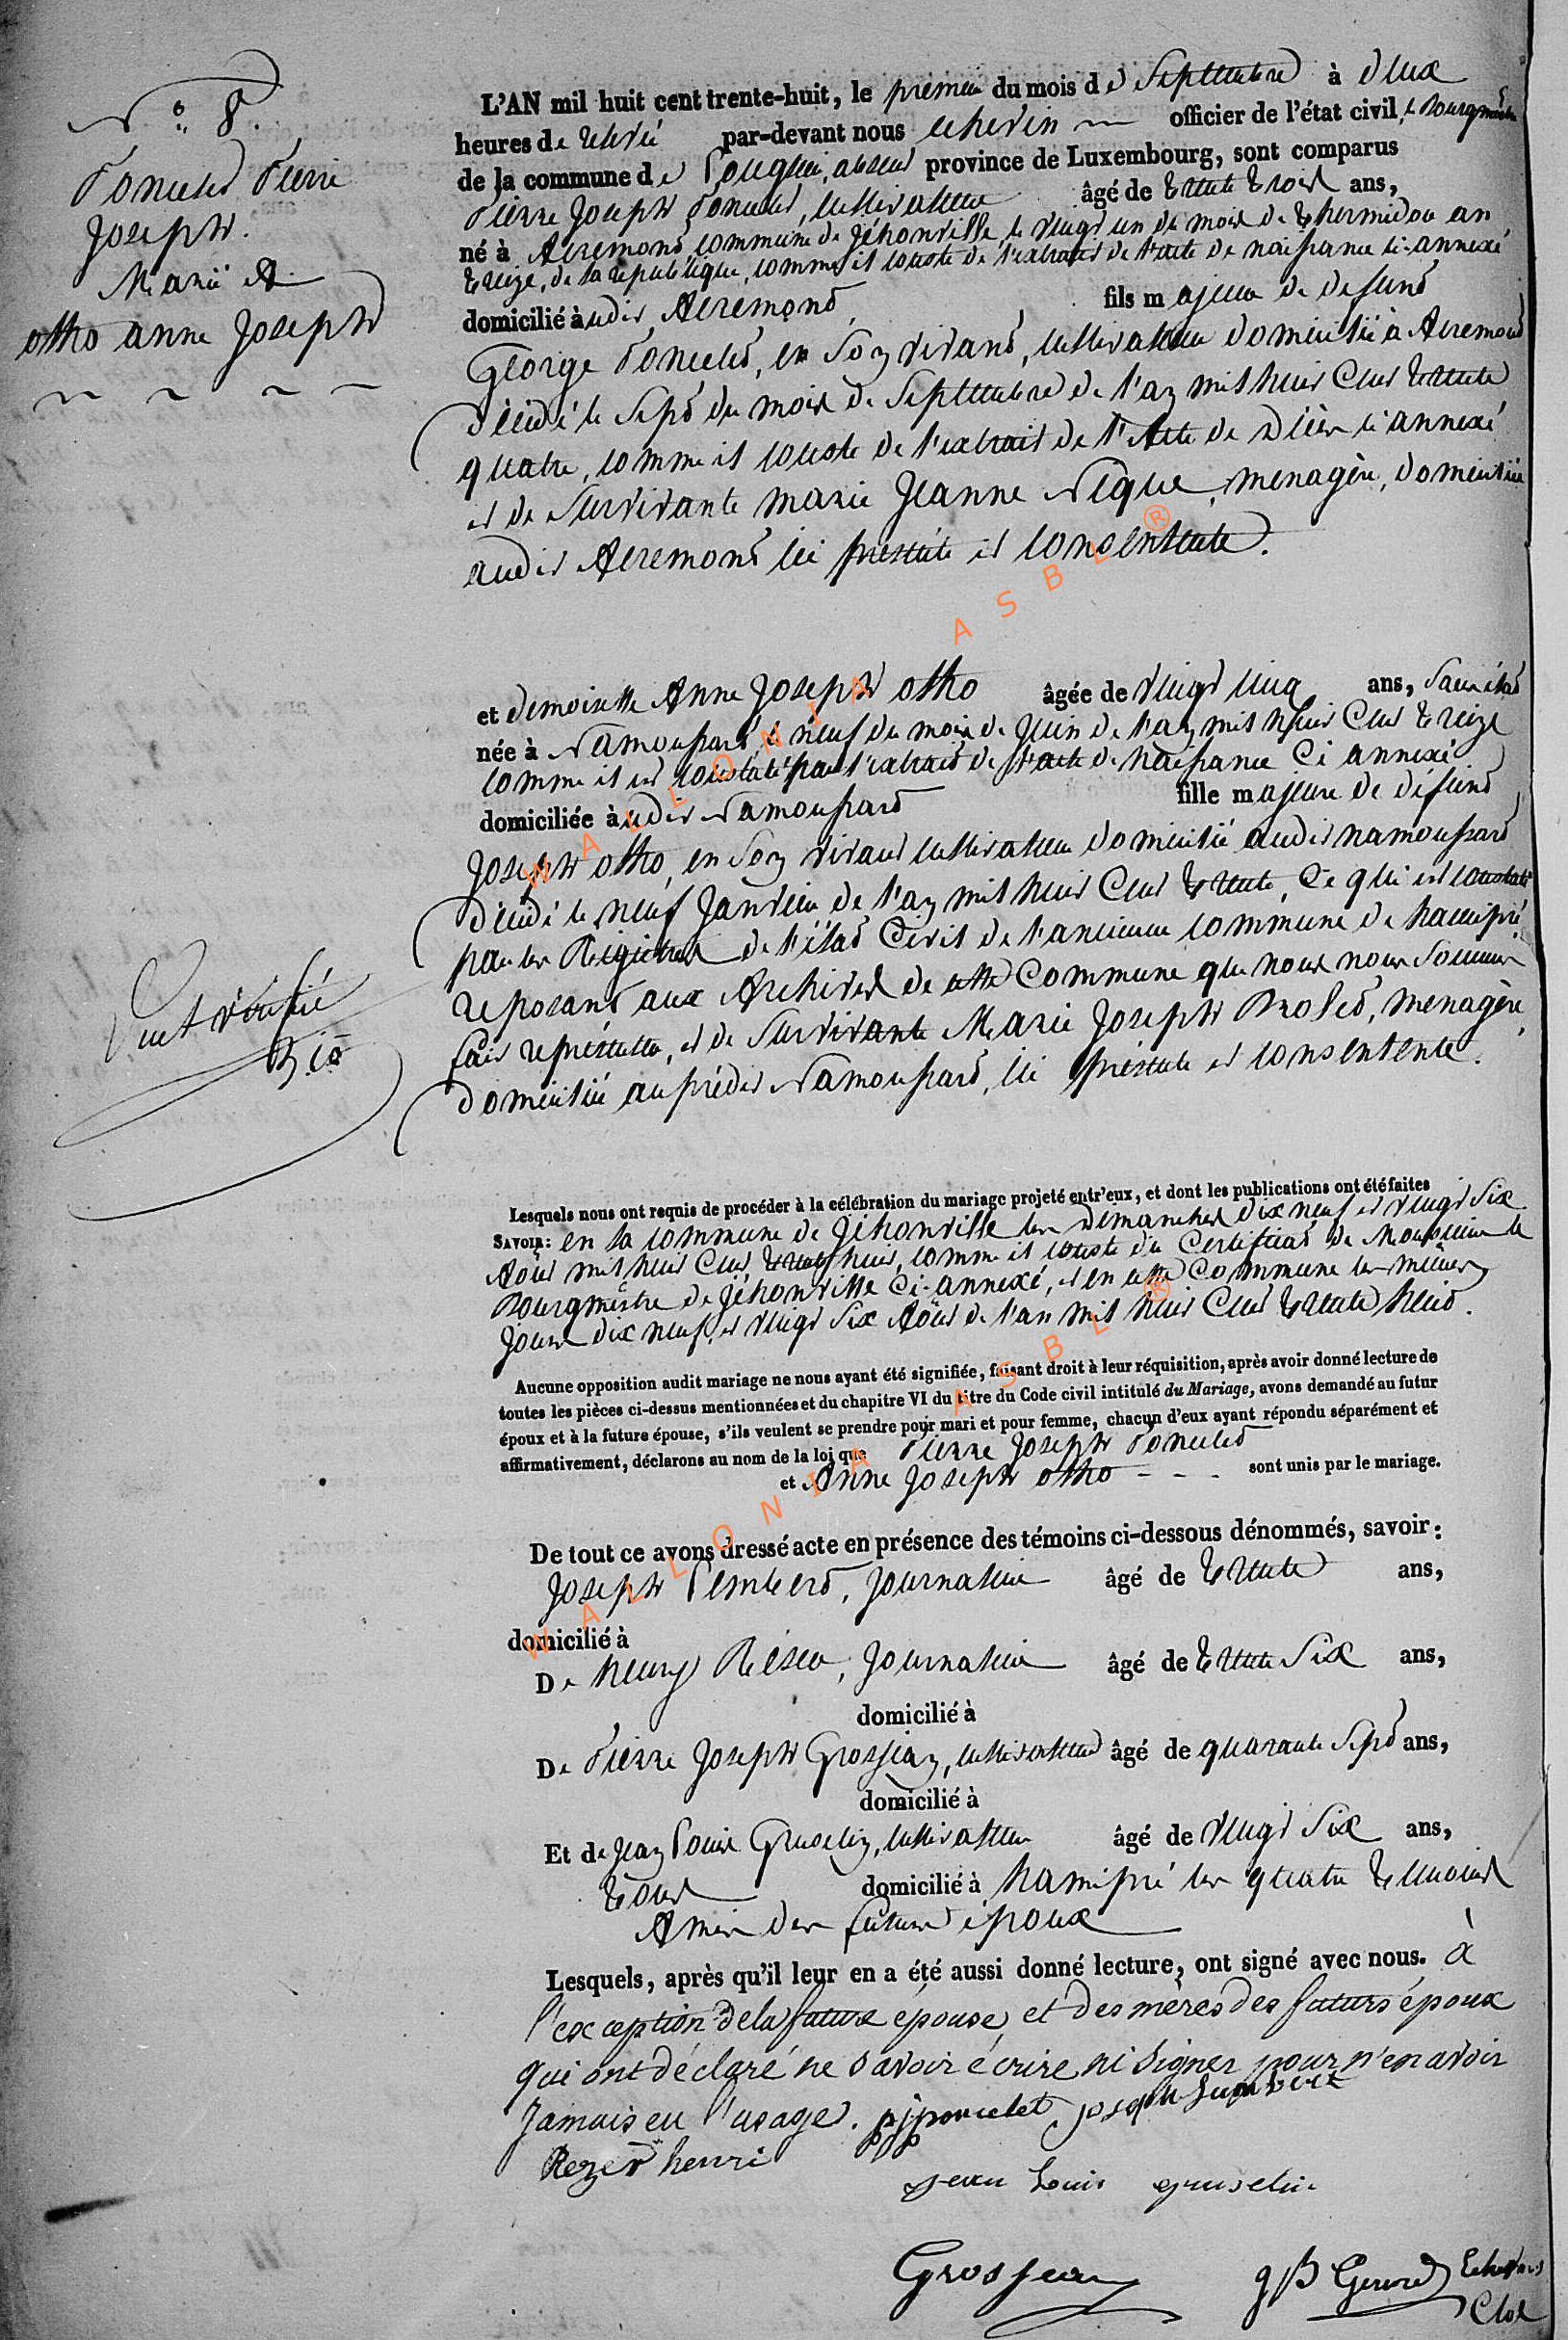 N° 8.
Poncelet Pierre
Joseph.
Marié A
otho anne Joseph
L'AN mil huit cent trente-huit, le premier du mois de Septembre à deux
heures de relevé par-devant nous echevin officier de l'état civil, le Bourgmestre
de la commune de Longlier, absent province de Luxembourg, sont comparus
Pierre Joseph Poncelet, cultivateur âgé de trente trois ans,
né à Acremont commune de Jéhonville, le vingt un du mois de thermidor an
treize, de la république, comme il conste de l'extrait de l'acte de naissance ci-annexé
domicilié audit Acremont fils majeur de defunt
George Poncelet, en son vivant, cultivateur domicilié à Acremont
décédé le sept du mois de Septembre de l'an mil huit cent trente
quatre, comme il conste de l'extrait de l'Acte de décès ci annexé
et de survivante marie Jeanne Nique, menagère, domiciliée
audit Acremont ici présente et consentente.
et demoiselle Anne Joseph otho âgée de vingt cinq ans, sans état
née à Namoussart le neuf du mois de Juin de l'an mil huit cent treize
comme il est constaté par l'extrait de l'acte de naissance ci annexé
domiciliée audit Namoussart fille majeure de défunt
Joseph otho, en son vivant cultivateur domicilié audit namoussart
décédé le neuf Janvier de l'an mil huit cent trente, ce qui est constaté
par les Régistres de l'état Civil de l'ancienne commune de hamipré
reposant aux Archives de cette Commune que nous nous sommes
fait représenter, et de survivante Marie Joseph Brolet, menagère
domiciliée au prédit Namoussart, ici présente et consentente.
Vu et vérifié
Lesquels nous ont requis de procéder à la célébration du mariage projeté entr'eux, et dont les publications ont été faites
SAVOIR: en la commune de Jéhonville les dimanches dix neuf et vingt six
Août mil huit cent trente huit, comme il conste du certificat de Monsieur le
Bourgmestre de Jéhonville ci-annexé, et en cette Commune les mêmes
jours dix neuf et vingt six Août de l'an mil huit cent trente huit.
Aucune opposition audit mariage ne nous ayant été signifiée, faisant droit à leur réquisition, après avoir donné lecture de
toutes les pièces ci-dessus mentionnées et du chapitre VI du titre du Code civil intitulé du Mariage, avons demandé au futur
époux et à la future épouse, s'ils veulent se prendre pour mari et pour femme, chacun d'eux ayant répondu séparément et
affirmativement, déclarons au nom de la loi que Pierre Joseph Poncelet
et Anne Joseph otho - - - sont unis par le mariage.
De tout ce avons dressé acte en présence des témoins ci-dessous dénommés, savoir:
Joseph Lembert, Journalier âgé de trente ans,
domicilié à
De henry , Journalier âgé de trente six ans,
domicilié à
De Pierre Joseph Grosjean, cultivateur âgé de quarante sept ans,
domicilié à
Et de Jean Louis Gruselin, cultivateur âgé de vingt six ans,
tous domicilié à hamipré les quatre temoins
Amis des futurs époux
Lesquels, après qu'il leur en a été aussi donné lecture, ont signé avec nous. à
l'exception de la future épouse et des mères des futurs époux
qui ont déclaré ne savoir écrire ni signer pour n'en avoir
Jamais eu l'usage. pjponcelet joseph
Rezer henri
jean Louis gruselin
Grosjean
Echevin
WALLONIA ASBL ®
WALLONIA ASBL ®